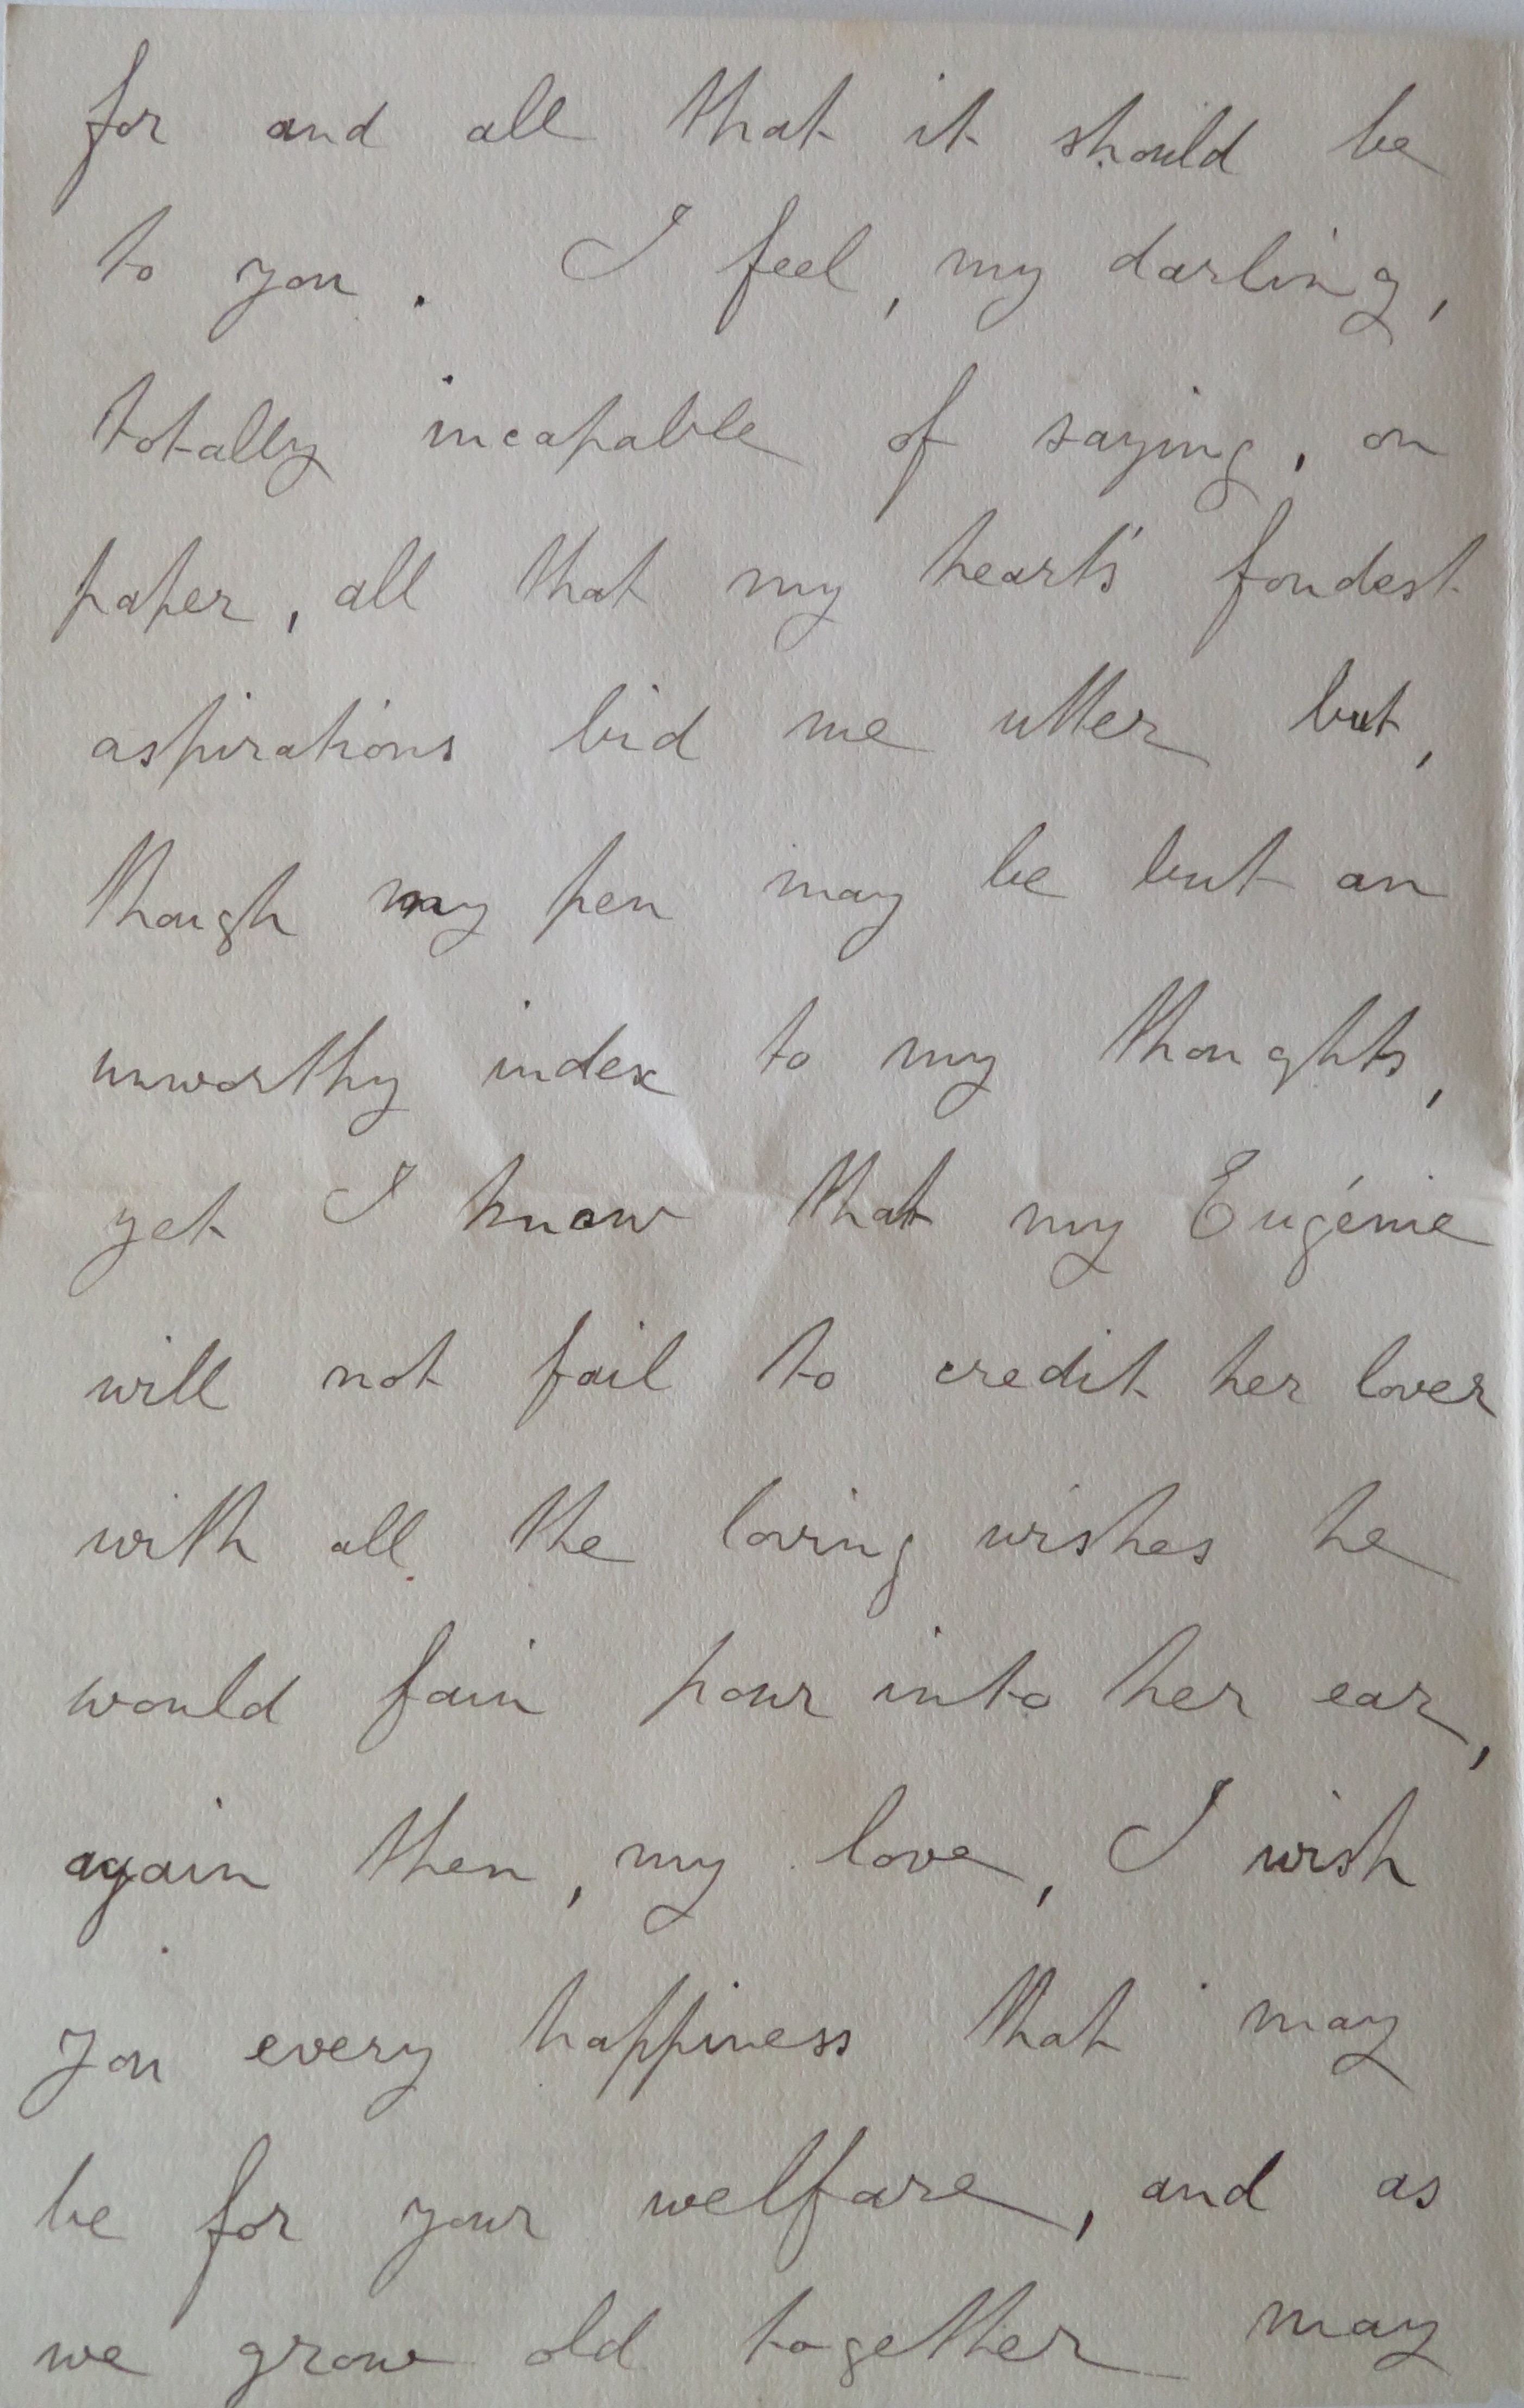 for and all that it should be
to you. I feel, my darling,
totally incapable of saying, on
paper, all that my heart's fondest
aspirations bid me utter but,
though my pen may be but an
unworthy index to my thoughts,
yet I know that my Eugénie
will not fail to credit her lover
with all the loving wishes he
would fain pour into her ear,
again then, my love, I wish
you every happiness that may
be for your welfare, and as
we grow old together may